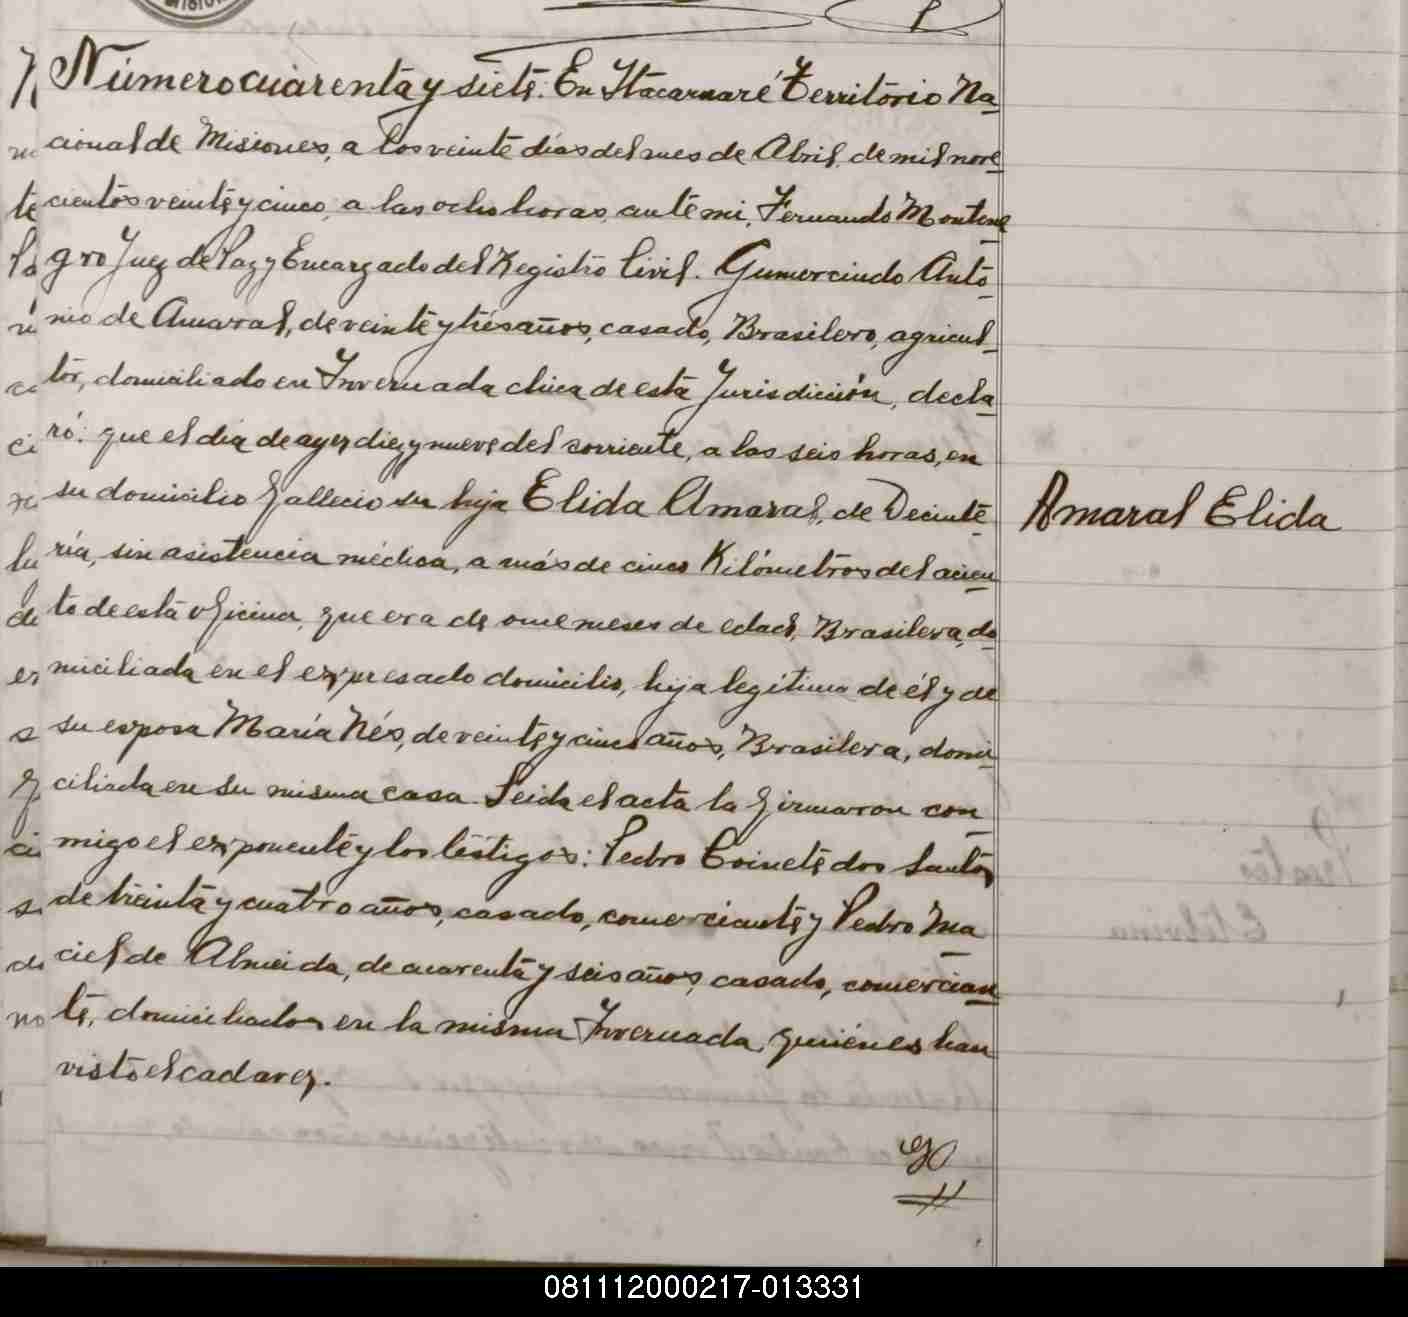 Número cuarenta y siete: En Itacaruaré Território Na
cional de Misiones, a los veinte días del mes de Abril, de mil nove
cientos veinte y cinco, a las ocho horas, ante mi, Fernando Montene
gro Juez de Paz y Encargado del Registro Civil. Gumercindo Antó
nio de Amaral, de veinte y trés años, casado, Brasilero, agricul
tor, domiciliado en Invernada chica de está Jurisdicción, decla
ró: que el día de ayer diez y nueve del corriente, a las seis horas, en
su domicilio fallecio su hija Elida Amaral, de Decinte
ría, sin asistencia médica, a más de cinco Kilómetros del acien
to de está oficina, que era de onse meses de edad, Brasilera, do
miciliada en el expresado domicilio, hija legítima de él y de
su esposa María Nés, de veinte y cinco años, Brasilera, domi
ciliada en su misma casa. Leida el acta la firmaron con
migo el exponente y los téstigos: Pedro Coinete dos Santos
de treinta y cuatro años, casado, comerciante y Pedro Ma
ciel de Almeida, de cuarenta y seis años, casado, comercian
te, domiciliados en la misma Invernada, quiénes han
visto el cadavez.
Amaral Elida
081112000217-013331